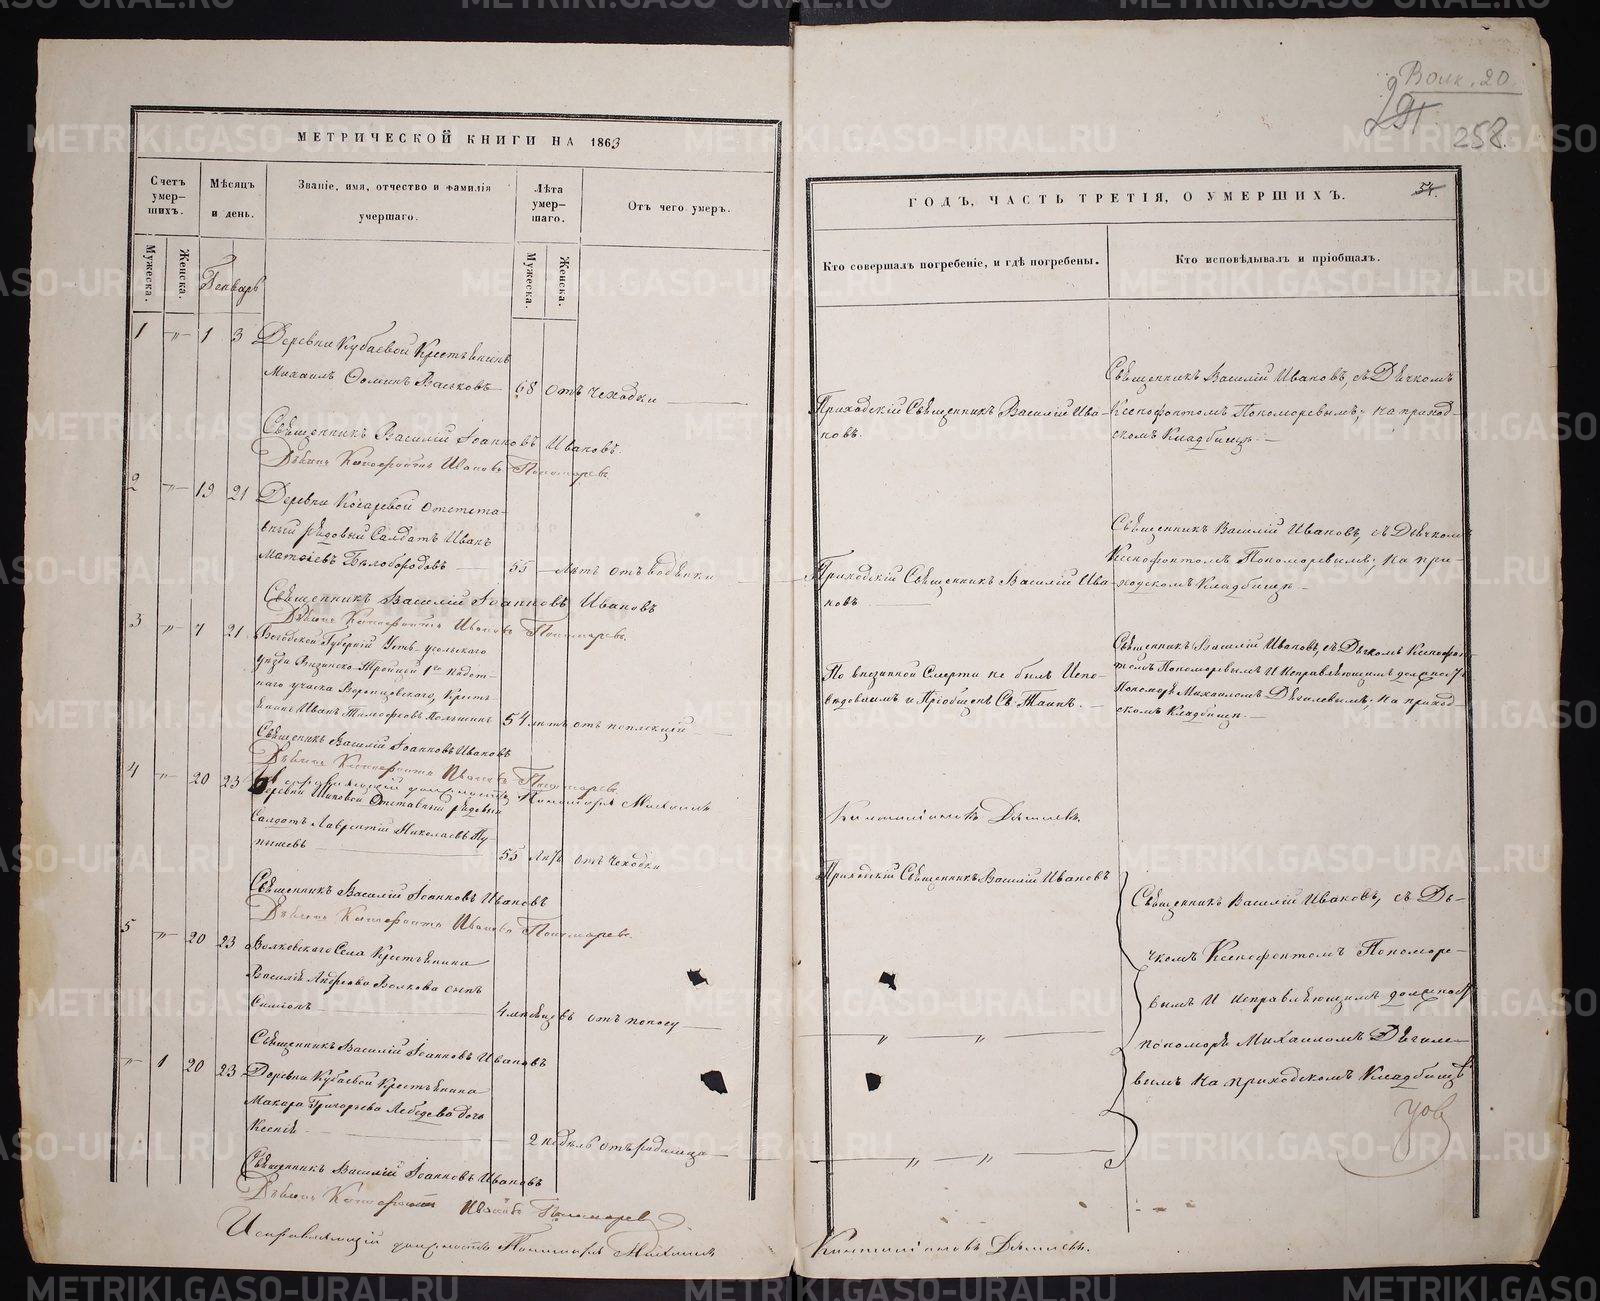 МЕТРИЧЕСКОЙ КНИГИ НА 1863
Счетъ умер-шихъ.
Мужеска.
Женска.
Мѣсяцъ и день.
Званіе, имя, отчество и фамилія умершаго.
Лѣта умер-шаго.
Мужеска.
Женска.
Отъ чего умеръ.
Генварь
1 -"- 1 3 Деревни Кубаевой Крестьянинъ
Михаилъ Ѳоминъ Васьковъ 68 отъ чеходки
Священникъ Василій Іоанновъ Ивановъ.
Дьячекъ Ксенофонтъ Ивановъ Пономаревъ
2 -"- 19 21 Деревни отстав-
ный рядовый Салдатъ Иванъ
Матвіевъ Бѣлобородовъ 55 Лѣтъ отъ водянки
Священникъ Василій Іоанновъ Ивановъ
Дьячекъ Ксенофонтъ Ивановъ Пономаревъ.
3 -"- 7 21 Губерніи Усть-сысольскаго
уѣзда Визинско-Троицкой 1го
наго учаска Воронцовскаго, Кресть-
янинъ Иванъ Тимофеевъ 54 лѣтъ отъ
Священникъ Василій Іоанновъ Ивановъ
Дьячекъ Ксенофонтъ Ивановъ Пономаревъ.
Исправляющій должность Пономаря Михаилъ
4 -"- 20 23 Деревни Отставный рядовый
Салдатъ Лаврентій Николаевъ Пу-
пышевъ 55 Лѣтъ отъ Чеходки
Священникъ Василій Іоанновъ Ивановъ
Дьячекъ Ксенофонтъ Ивановъ Пономаревъ.
5 -"- 20 23 Волковскаго Села Крестьянина
Василія Волкова сынъ
Симіонъ 4 мѣсяцовъ отъ поносу
Священникъ Василій Іоанновъ Ивановъ
-"- 1 20 23 Деревни Кубаевой Крестьянина
Макара Григорьева Лебедева дочь
Ксенія 2 недѣль отъ родимца
Священникъ Василій Іоанновъ Ивановъ
Дьячекъ Ксенофонтъ Ивановъ Пономаревъ
Исправляющій должность Пономаря Михаилъ
Волк. 20.
258.
ГОДЪ, ЧАСТЬ ТРЕТІЯ, О УМЕРШИХЪ.
54.
Кто совершалъ погребеніе, и гдѣ погребены.
Кто исповѣдывалъ и пріобщалъ.
Приходскій Священникъ Василій Ива-
новъ.
Священникъ Василій Ивановъ, съ Дьячкомъ
Ксенофонтомъ Пономаревымъ; на приход-
скомъ Кладбищѣ.
Приходскій Священникъ Василій Ива-
новъ
Священникъ Василій Ивановъ, съ Дьячкомъ
Ксенофонтомъ Пономаревымъ; на при-
ходскомъ Кладбищѣ
По внезапной Смерти не былъ Испо-
вѣдованъ и Пріобщенъ Св. Таинъ.
Священникъ Василій Ивановъ, съ Дьячкомъ Ксенофон-
томъ Пономаревымъ И Исправляющимъ должность
Пономаря Михаиломъ Дягилевымъ; на приход-
скомъ Кладбищѣ.
Дягилевъ
Приходскій Священникъ Василій Ивановъ
Священникъ Василій Ивановъ, съ Дья-
чкомъ Ксенофонтомъ Пономаре-
вымъ И исправляющимъ должность
пономаря Михаиломъ Дягиле-
вымъ на приходскомъ Кладбищѣ
" "
" "
Дягилевъ.
METRIKI.GASO-URAL.RU